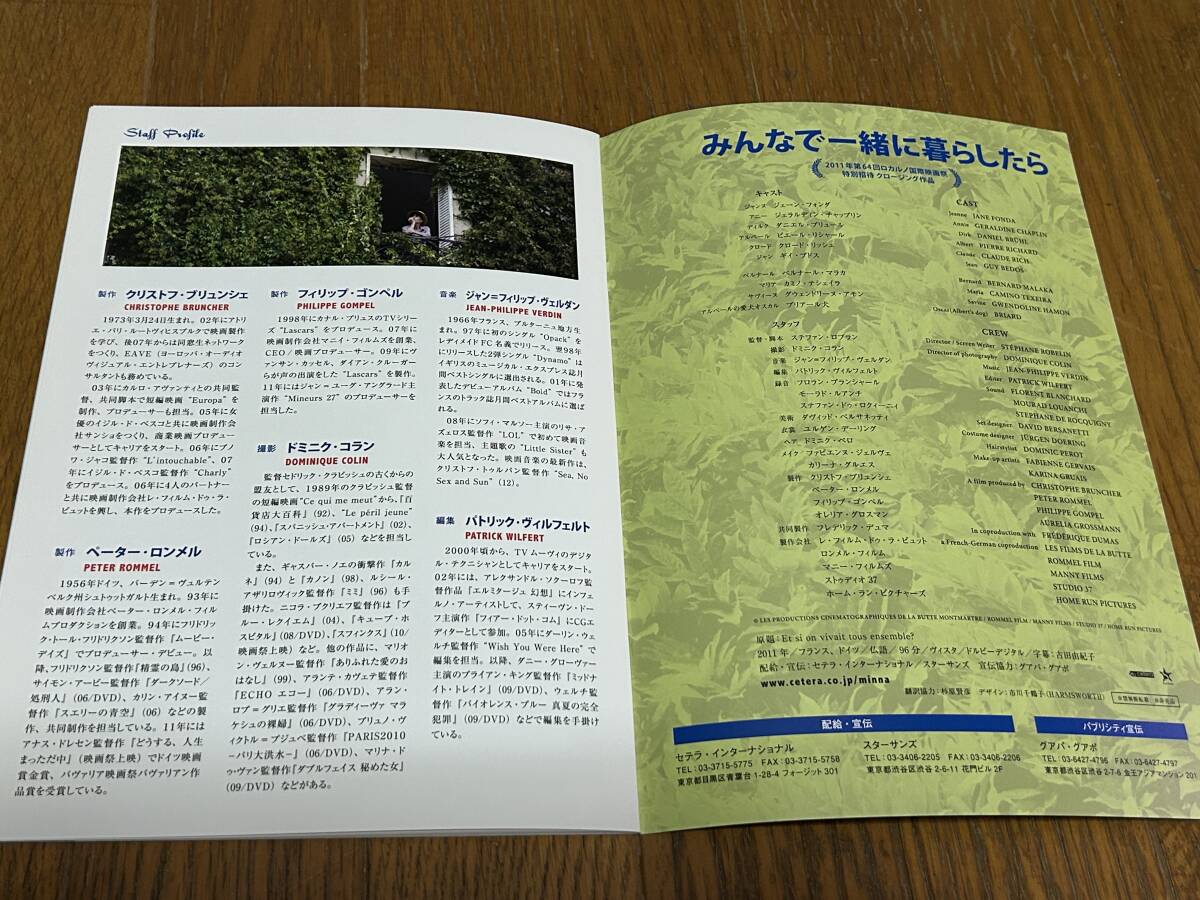 Staff Profile
製作 クリストフ・ブリュンシェ
CHRISTOPHE BRUNCHER
1973年3月24日生まれ。02年にアトリ
エ・パリ・ルートヴィヒスブルクで映画製作
を学び、後07年からは同窓生ネットワーク
をつくり、EAVE（ヨーロッパ・オーディオ
ヴィジュアル・エントレプレナーズ）のコン
サルタントも務めている。
03年にカルロ・アヴァンティとの共同監
督、共同脚本で短編映画 "Europa" を
制作、プロデューサーも担当。05年に女
優のイジル・ド・ベスコと共に映画制作会
社サンショをつくり、商業映画プロデュー
サーとしてキャリアをスタート。06年にブノ
ワ・ジャコ監督作 "L'intouchable"、07
年にイジル・ド・ベスコ監督作 "Charly"
をプロデュース。06年に4人のパートナー
と共に映画制作会社レ・フィルム・ドゥ・ラ・
ビュットを興し、本作をプロデュースした。
製作 ペーター・ロンメル
PETER ROMMEL
1956年ドイツ、バーデン＝ヴュルテン
ベルク州シュトゥットガルト生まれ。93年に
映画制作会社ペーター・ロンメル・フィル
ムプロダクションを創業。94年にフリドリ
ック・トール・フリドリクソン監督作『ムービー・
デイズ』でプロデューサー・デビュー。以
降、フリドリクソン監督作『精霊の島』(96)、
サイモン・アービー監督作『ダークソード／
処刑人』(06/DVD)、カリン・アイヌー監
督作『スエリーの青空』(06) などの製
作、共同制作を担当している。11年には
アナス・ドレセン監督作『どうする、人生
まっただ中』（映画祭上映）でドイツ映画
賞金賞、バヴァリア映画祭バヴァリアン作
品賞を受賞している。
製作 フィリップ・ゴンペル
PHILIPPE GOMPEL
1998年にカナル・プリュスのTVシリ
ーズ "Lascars" をプロデュース。07年に
映画制作会社マニイ・フィルムズを創業、
CEO／映画プロデューサー。09年にヴ
ァンサン・カッセル、ダイアン・クルーガー
らが声の出演をした "Lascars" を製作。
11年にはジャン＝ユーグ・アングラード主
演作 "Mineurs 27" のプロデューサーを
担当した。
撮影 ドミニク・コラン
DOMINIQUE COLIN
監督セドリック・クラピッシュの古くからの
盟友として、1989年のクラピッシュ監督
の短編映画"Ce qui me meut"から、『百
貨店大百科』(92)、"Le péril jeune"
(94)、『スパニッシュ・アパートメント』(02)、
『ロシアン・ドールズ』(05) などを担当し
ている。
また、ギャスパー・ノエの衝撃作『カル
ネ』(94) と『カノン』(98)、ルシール・
アザリロヴィック監督作『ミミ』(96) も手
掛けた。ニコラ・ブクリエフ監督作は『ブ
ルー・レクイエム』(04)、『キューブ・ホ
スピタル』(08/DVD)、『スフィンクス』(10/
映画祭上映) など。他の作品に、マリオ
ン・ヴェルヌー監督作『ありふれた愛のお
はなし』(99)、アランテ・カヴェテ監督作
『ECHO エコー』(06/DVD)、アラン・
ロブ＝グリエ監督作『グラディーヴァ マラ
ケシュの裸婦』(06/DVD)、ブリュノ・ヴ
ィクトル＝プジュベ監督作『PARIS2010
−パリ大洪水−』(06/DVD)、マリナ・ド
ゥ・ヴァン監督作『ダブルフェイス 秘めた女』
(09/DVD) などがある。
音楽 ジャン＝フィリップ・ヴェルダン
JEAN-PHILIPPE VERDIN
1966年フランス、ブルターニュ地方生
まれ。97年に初のシングル "Opack" を
レディメイドFC名義でリリース。翌98年
にリリースした2弾シングル "Dynamo" は
イギリスのミュージカル・エクスプレス誌月
間ベストシングルに選出される。01年に発
表したデビューアルバム "Bold" ではフラ
ンスのトラック誌月間ベストアルバムに選ば
れる。
08年にソフィ・マルソー主演のリサ・ア
ズェロス監督作 "LOL" で初めて映画音
楽を担当、主題歌の "Little Sister" も
大人気となった。映画音楽の最新作は、
クリストフ・トゥルパン監督作 "Sea, No
Sex and Sun" (12)。
編集 パトリック・ヴィルフェルト
PATRICK WILFERT
2000年頃から、TVムーヴィのデジタ
ル・テクニシャンとしてキャリアをスタート。
02年には、アレクサンドル・ソクーロフ監
督作品『エルミタージュ幻想』にインフェ
ルノ・アーティストして、スティーヴン・ドー
フ主演作『フィアー・ドット・コム』にCGエ
ディターとして参加。05年にダーリン・ウェ
ルチ監督作 "Wish You Were Here" で
編集を担当。以降、ダニー・グローヴァー
主演のブライアン・キング監督作『ミッドナ
イト・トレイン』(09/DVD)、ウェルチ監
督作『バイオレンス・ブルー 真夏の完全
犯罪』(09/DVD) などで編集を手掛け
ている。
みんなで一緒に暮らしたら
2011年第64回ロカルノ国際映画祭
特別招待 クロージング作品
キャスト
ジャンヌ ジェーン・フォンダ
アニー ジェラルディン・チャップリン
ディルク ダニエル・ブリュール
アルベール ピエール・リシャール
クロード クロード・リッシュ
ジャン ギイ・ブドス
ベルナール ベルナール・マラカ
マリア カミノ・テシェイラ
サヴィーヌ グウェンドリーヌ・アモン
アルベールの愛犬オスカル ブリアール犬
スタッフ
監督・脚本 ステファン・ロブラン
撮影 ドミニク・コラン
音楽 ジャン＝フィリップ・ヴェルダン
編集 パトリック・ヴィルフェルト
録音 フロラン・ブランシャール
モーラド・ルアンチ
ステファン・ドゥ・ロクィーニィ
美術 ダヴィッド・ベルサネッティ
衣裳 ユルゲン・デーリング
ヘア ドミニク・ペロ
メイク ファビエンヌ・ジェルヴェ
カリーナ・グルエス
製作 クリストフ・ブリュンシェ
ペーター・ロンメル
フィリップ・ゴンペル
オレリア・グロスマン
共同製作 フレデリック・デュマ
製作会社 レ・フィルム・ドゥ・ラ・ビュット
ロンメル・フィルム
マニー・フィルムズ
ストゥディオ 37
ホーム・ラン・ピクチャーズ
CAST
Jeanne JANE FONDA
Annie GERALDINE CHAPLIN
Dirk DANIEL BRÜHL
Albert PIERRE RICHARD
Claude CLAUDE RICH
Jean GUY BEDOS
Bernard BERNARD MALAKA
Maria CAMINO TEXEIRA
Savine GWENDOLINE HAMON
Oscar(Albert's dog) BRIARD
CREW
Director / Screen Writer STÉPHANE ROBELIN
Director of photography DOMINIQUE COLIN
Music JEAN-PHILIPPE VERDIN
Editer PATRICK WILFERT
Sound FLORENT BLANCHARD
MOURAD LOUANCHI
STEPHANE DE ROCQUIGNY
Set designer DAVID BERSANETTI
Costume designer JÜRGEN DOERING
Hairstylist DOMINIC PEROT
Make-up artists FABIENNE GERVAIS
KARINA GRUAIS
A film produced by CHRISTOPHE BRUNCHER
PETER ROMMEL
PHILIPPE GOMPEL
AURELIA GROSSMANN
In coproduction with FRÉDÉRIQUE DUMAS
a French-German coproduction LES FILMS DE LA BUTTE
ROMMEL FILM
MANNY FILMS
STUDIO 37
HOME RUN PICTURES
© LES PRODUCTIONS CINEMATOGRAPHIQUES DE LA BUTTE MONTMARTRE / ROMMEL FILM / MANNY FILMS / STUDIO 37 / HOME RUN PICTURES
原題：Et si on vivait tous ensemble?
2011年／フランス、ドイツ／仏語／96分／ヴィスタ／ドルビーデジタル／字幕：古田由紀子
配給・宣伝：セテラ・インターナショナル／スターサンズ 宣伝協力：グアパ・グアポ
www.cetera.co.jp/minna
翻訳協力：杉原賢彦 デザイン：市川千鶴子(HARMSWORTH)
配給・宣伝
セテラ・インターナショナル
TEL：03-3715-5775 FAX：03-3715-5758
東京都目黒区青葉台 1-28-4 フォージット 301
スターサンズ
TEL：03-3406-2205 FAX：03-3406-2206
東京都渋谷区渋谷 2-6-11 花門ビル 2F
パブリシティ宣伝
グアパ・グアポ
TEL：03-6427-4796 FAX：03-6427-4797
東京都渋谷区渋谷 2-7-6 金王アジアマンション 201